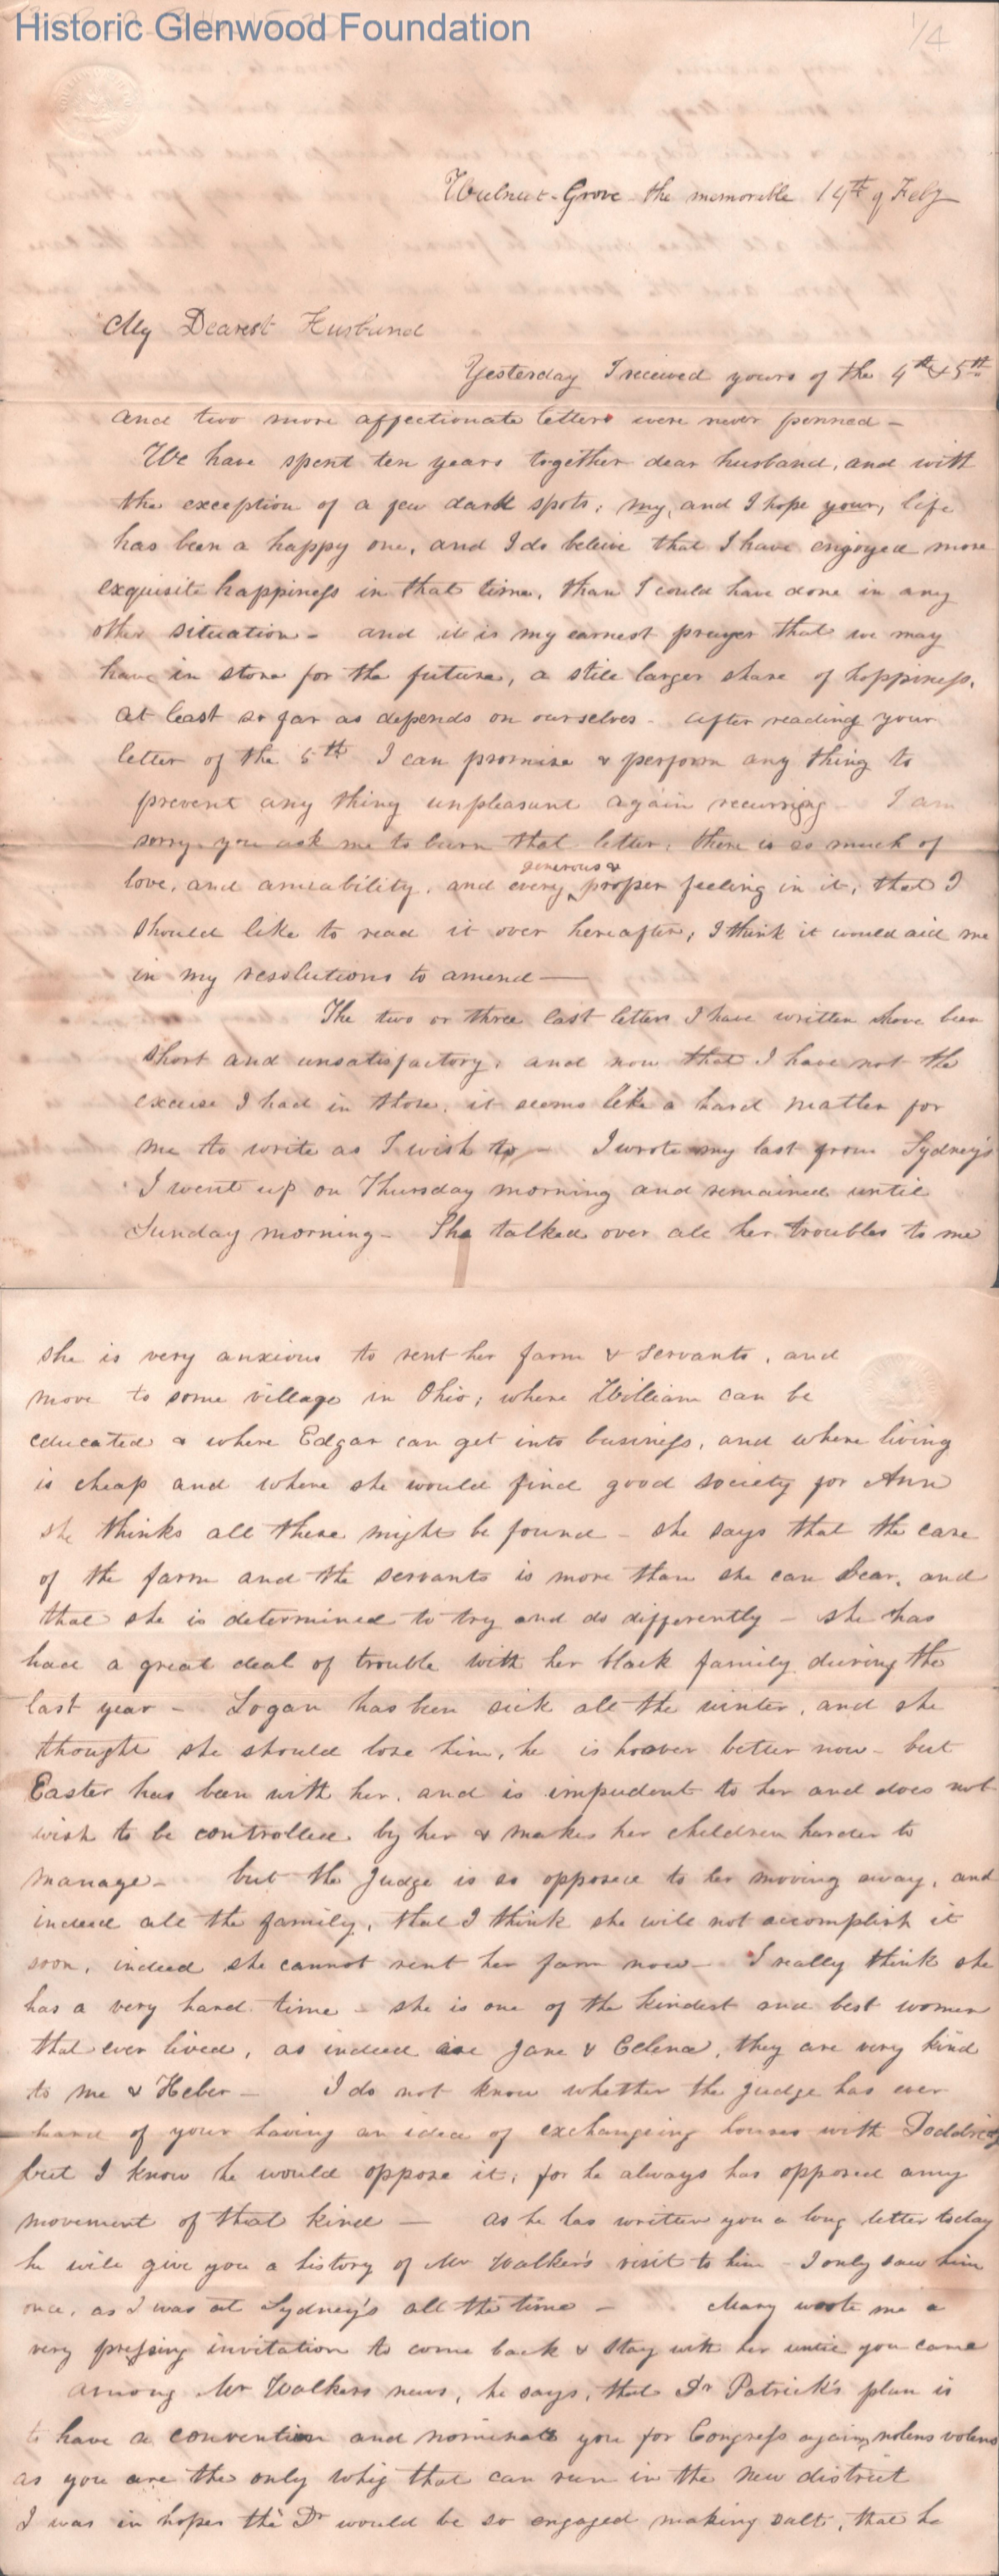 Historic Glenwood Foundation
1/4
Walnut-Grove the memorable 14th of Feby
My Dearest Husband
Yesterday I received yours of the 4th & 5th
and two more affectionate letters were never penned –
We have spent ten years together dear husband, and with
the exception of a few dark spots, my, and I hope your, life
has been a happy one, and I do beleive that I have enjoyed more
exquisite happiness in that time, than I could have done in any
other situation – and it is my earnest prayer that we may
have in store for the future, a still larger share of happiness,
at least so far as depends on ourselves – after reading your
letter of the 5th I can promise & perform any thing to
prevent any thing unpleasant again recurring – I am
sorry you ask me to burn that letter, there is so much of
love, and amiability, and every generous & proper feeling in it, that I
should like to read it over hereafter, I think it would aid me
in my resolutions to amend —
The two or three last letters I have written have been
short and unsatisfactory, and now that I have not the
excuse I had in those, it seems like a hard matter for
me to write as I wish to – I wrote my last from Sydney's
I went up on Thursday morning and remained until
Sunday morning – She talked over all her troubles to me
she is very anxious to rent her farm & servants, and
move to some village in Ohio, where William can be
educated & where Edgar can get into business, and where living
is cheap and where she would find good society for Ann
she thinks all these might be found – she says that the care
of the farm and the servants is more than she can bear, and
that she is determined to try and do differently – she has
had a great deal of trouble with her black family during the
last year – Logan has been sick all the winter, and she
thought she should lose him, he is hoover better now – but
Easter has been with her, and is impudent to her and does not
wish to be controlled by her & makes her children harder to
manage – but the Judge is so opposed to her moving away, and
indeed all the family, that I think she will not accomplish it
soon, indeed she cannot rent her farm now – I really think she
has a very hard time – she is one of the kindest and best women
that ever lived, as indeed are Jane & Celena, they are very kind
to me & Heber – I do not know whether the Judge has ever
heard of your having an idea of exchangeing houses with Doddridge
but I know he would oppose it, for he always has opposed any
movement of that kind — as he has written you a long letter today
he will give you a history of Mr Walker's visit to him – I only saw him
once, as I was at Sydney's all the time – Mary wrote me a
very pressing invitation to come back & stay with her until you came
among Mr Walkers news, he says, that Dr Patrick's plan is
to have a convention and nominate you for Congress again, nolens volens
as you are the only whig that can run in the new district
I was in hopes the Dr would be so engaged making salt, that he